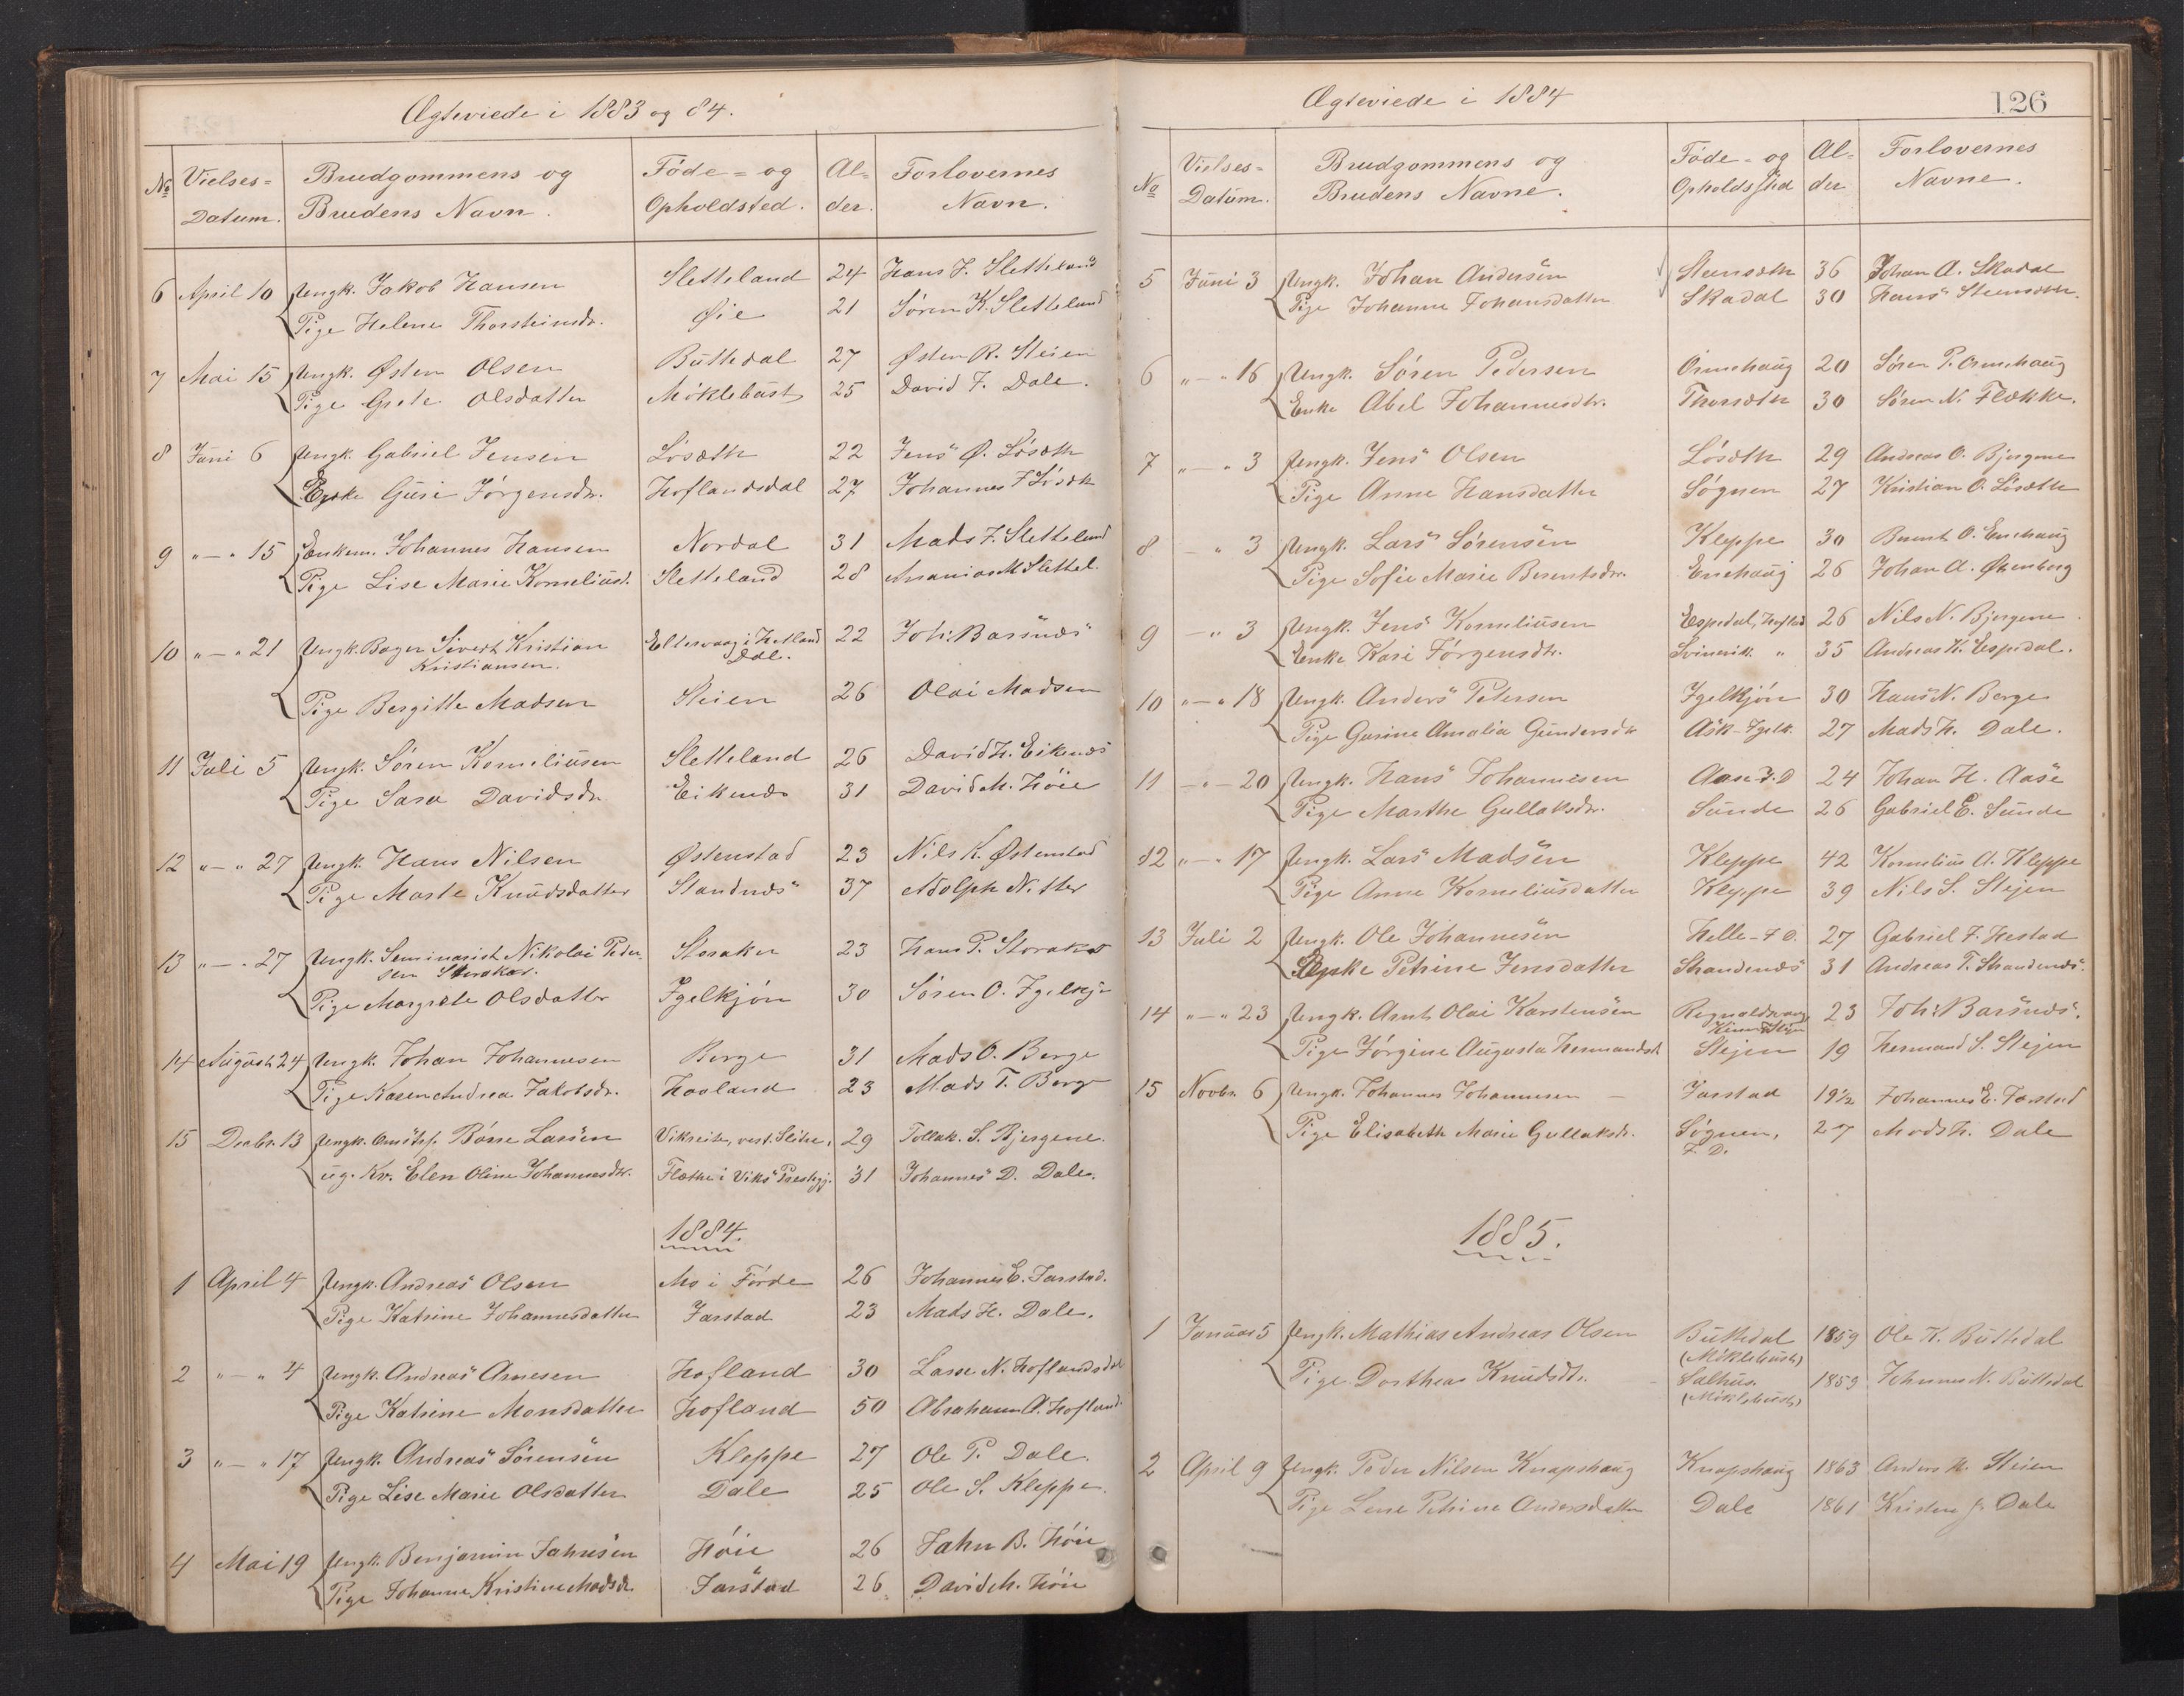 Ægteviede i 1883 og 84.
No Vielses= Datum. Brudgommens og Brudens Navn. Føde= og Opholdsted. Al= der. Forlovernes Navn.
6 April 10 Ungk. Jakob Hansen Sletteland 24 Hans J. Sletteland
Pige Helene Thorsteinsdr. Øie 21 Søren K. Sletteland
7 Mai 15 Ungk. Østen Olsen Buttedal 27 Østen R. Steien
Pige Grete Olsdatter Møklebust 25 David J. Dale.
8 Juni 6 Ungk. Gabriel Jensen Løsæth 22 Jens Ø. Løsæth
Enke Guri Jørgensdr. Hoflandsdal 27 Johannes J Løsæth
9 " — " 15 Enkem. Johannes Hansen Nordal 31 Mads J. Sletteland
Pige Lise Marie Korneliusd. Sletteland 28 Ananias M Slettel.
10 " — " 21 Ungk. Bager Sivert Kristian Eltervaag i Hetland 22 Joh: Barsnæs
Kristiansen. Dal.
Pige Bergitte Madsen Steien 26 Olai Madsen
11 Juli 5 Ungk. Søren Korneliusen Sletteland 26 David H. Eikenæs
Pige Sara Davidsdr. Eikenæs 31 David M. Høie
12 " — " 27 Ungk. Hans Nilsen Østenstad 23 Nils K. Østenstad
Pige Marte Knudsdatter Standnæs 37 Adolph Nitter
13 " — " 27 Ungk. Seminarist Nikolai Peder- Storaker 23 Hans P. Storaker
sen Storaker.
Pige Margrete Olsdatter Igelkjøn 30 Søren O. Igelkj.
14 August 24 Ungk. Johan Johannesen Berge 31 Mads O. Berge
Pige Karen Andrea Jakobsdr. Hovland 23 Mads T. Berge
15 Decbr. 13 Ungk. Børre Larsen Vikreite, vest. Slidre, 29 Tollak. S. Bjergene.
ug. Kv. Elen Oline Johannesdtr. Flæthe i Viks Prestegj. 31 Johannes D. Dale.
1884.
1 April 4 Ungk. Andreas Olsen Mo i Førde 26 Johannes E. Jarstad.
Pige Katrine Johannesdatter Jarstad 23 Mads H. Dale.
2 " — " 4 Ungk. Andreas Arnesen Hofland 30 Lasse N. Hoflandsdal
Pige Katrine Monsdatter Hofland 50 Abraham A. Hofland.
3 " — " 17 Ungk. Andreas Sørensen Kleppe 27 Ole P. Dale.
Pige Lise Marie Olsdatter Dale 25 Ole S. Kleppe.
4 Mai 19 Ungk. Benjamin Jahnsen Høie 26 Jahn B. Høie
Pige Johanne Kristine Madsdr. Jarstad 26 David M. Høie
Ægteviede i 1884
126
No Vielses= Datum. Brudgommens og Brudens Navne. Føde- og Opholdssted Al= der Forlovernes Navne.
5 Juni 3 Ungk. Johan Andersen Stensæth 36 Johan A. Skadal
Pige Johanne Johansdatter Skadal 30 Hans Steensæth.
6 " — " 16 Ungk. Søren Pedersen Ormehaug 20 Søren P. Ormehaug
Enke Abel Johannesdtr. Thorsæth 30 Søren N. Flække.
7 " — " 3 Ungk. Jens Olsen Løsæth 29 Andreas O. Bjergene
Pige Anne Hansdatter Søgnen 27 Kristian O. Løsæth
8 — " 3 Ungk. Lars Sørensen Kleppe 30 Berent O. Enehaug
Pige Sofie Marie Berentsdtr. Enehaug 26 Johan A. Økenborg
9 — " 3 Ungk. Jens Korneliusen Espedal, Hofland 26 Nils N. Bjergene.
Enke Kari Jørgensdtr. Svinevik " 35 Andreas K. Espedal.
10 " — " 18 Ungk. Anders Petersen Igelkjøn 30 Hans N. Berge
Pige Gurine Amalia Gundersdtr Ask-Igelk. 27 Mads H. Dale.
11 — " — 20 Ungk. Hans Johannesen Aase J.D 24 Johan H. Aase
Pige Marthe Gullaksdr. Sunde 26 Gabriel E. Sunde
12 " — " 17 Ungk. Lars Madsen Kleppe 42 Kornelius A. Kleppe
Pige Anne Korneliusdatter Kleppe 39 Nils S. Stejen
13 Juli 2 Ungk. Ole Johannesen Helle - F D. 27 Gabriel F. Hestad
Enke Petrine Jensdatter Strandenæs 31 Andreas T. Strandenæs.
14 " — " 23 Ungk. Arnt Olai Karstensen Rognaldsvaag 23 Joh: Barsnæs.
Kinn
Pige Jørgine Augusta Hermandsd. Stejen 19 Hermand S. Stejen
15 Novbr. 6 Ungk. Johannes Johannesen — Jarstad 19½ Johannes E. Jarstad
Pige Elisabeth Marie Gullaksdr. Søgnen, 27 Mads H. Dale
F. D.
1885.
1 Januar 5 Ungk. Mathias Andreas Olsen Buttedal 1859 Ole K. Buttedal
(Møklebust)
Pige Dorthea Knudsdtr. Salhus. 1859 Johannes N. Buttedal
(Møklebust)
2 April 9 Ungk. Peder Nilsen Knapshaug Knapshaug 1863 Anders M. Steien
Pige Lene Petrine Andersdatter Dale 1861 Kristen J. Dale